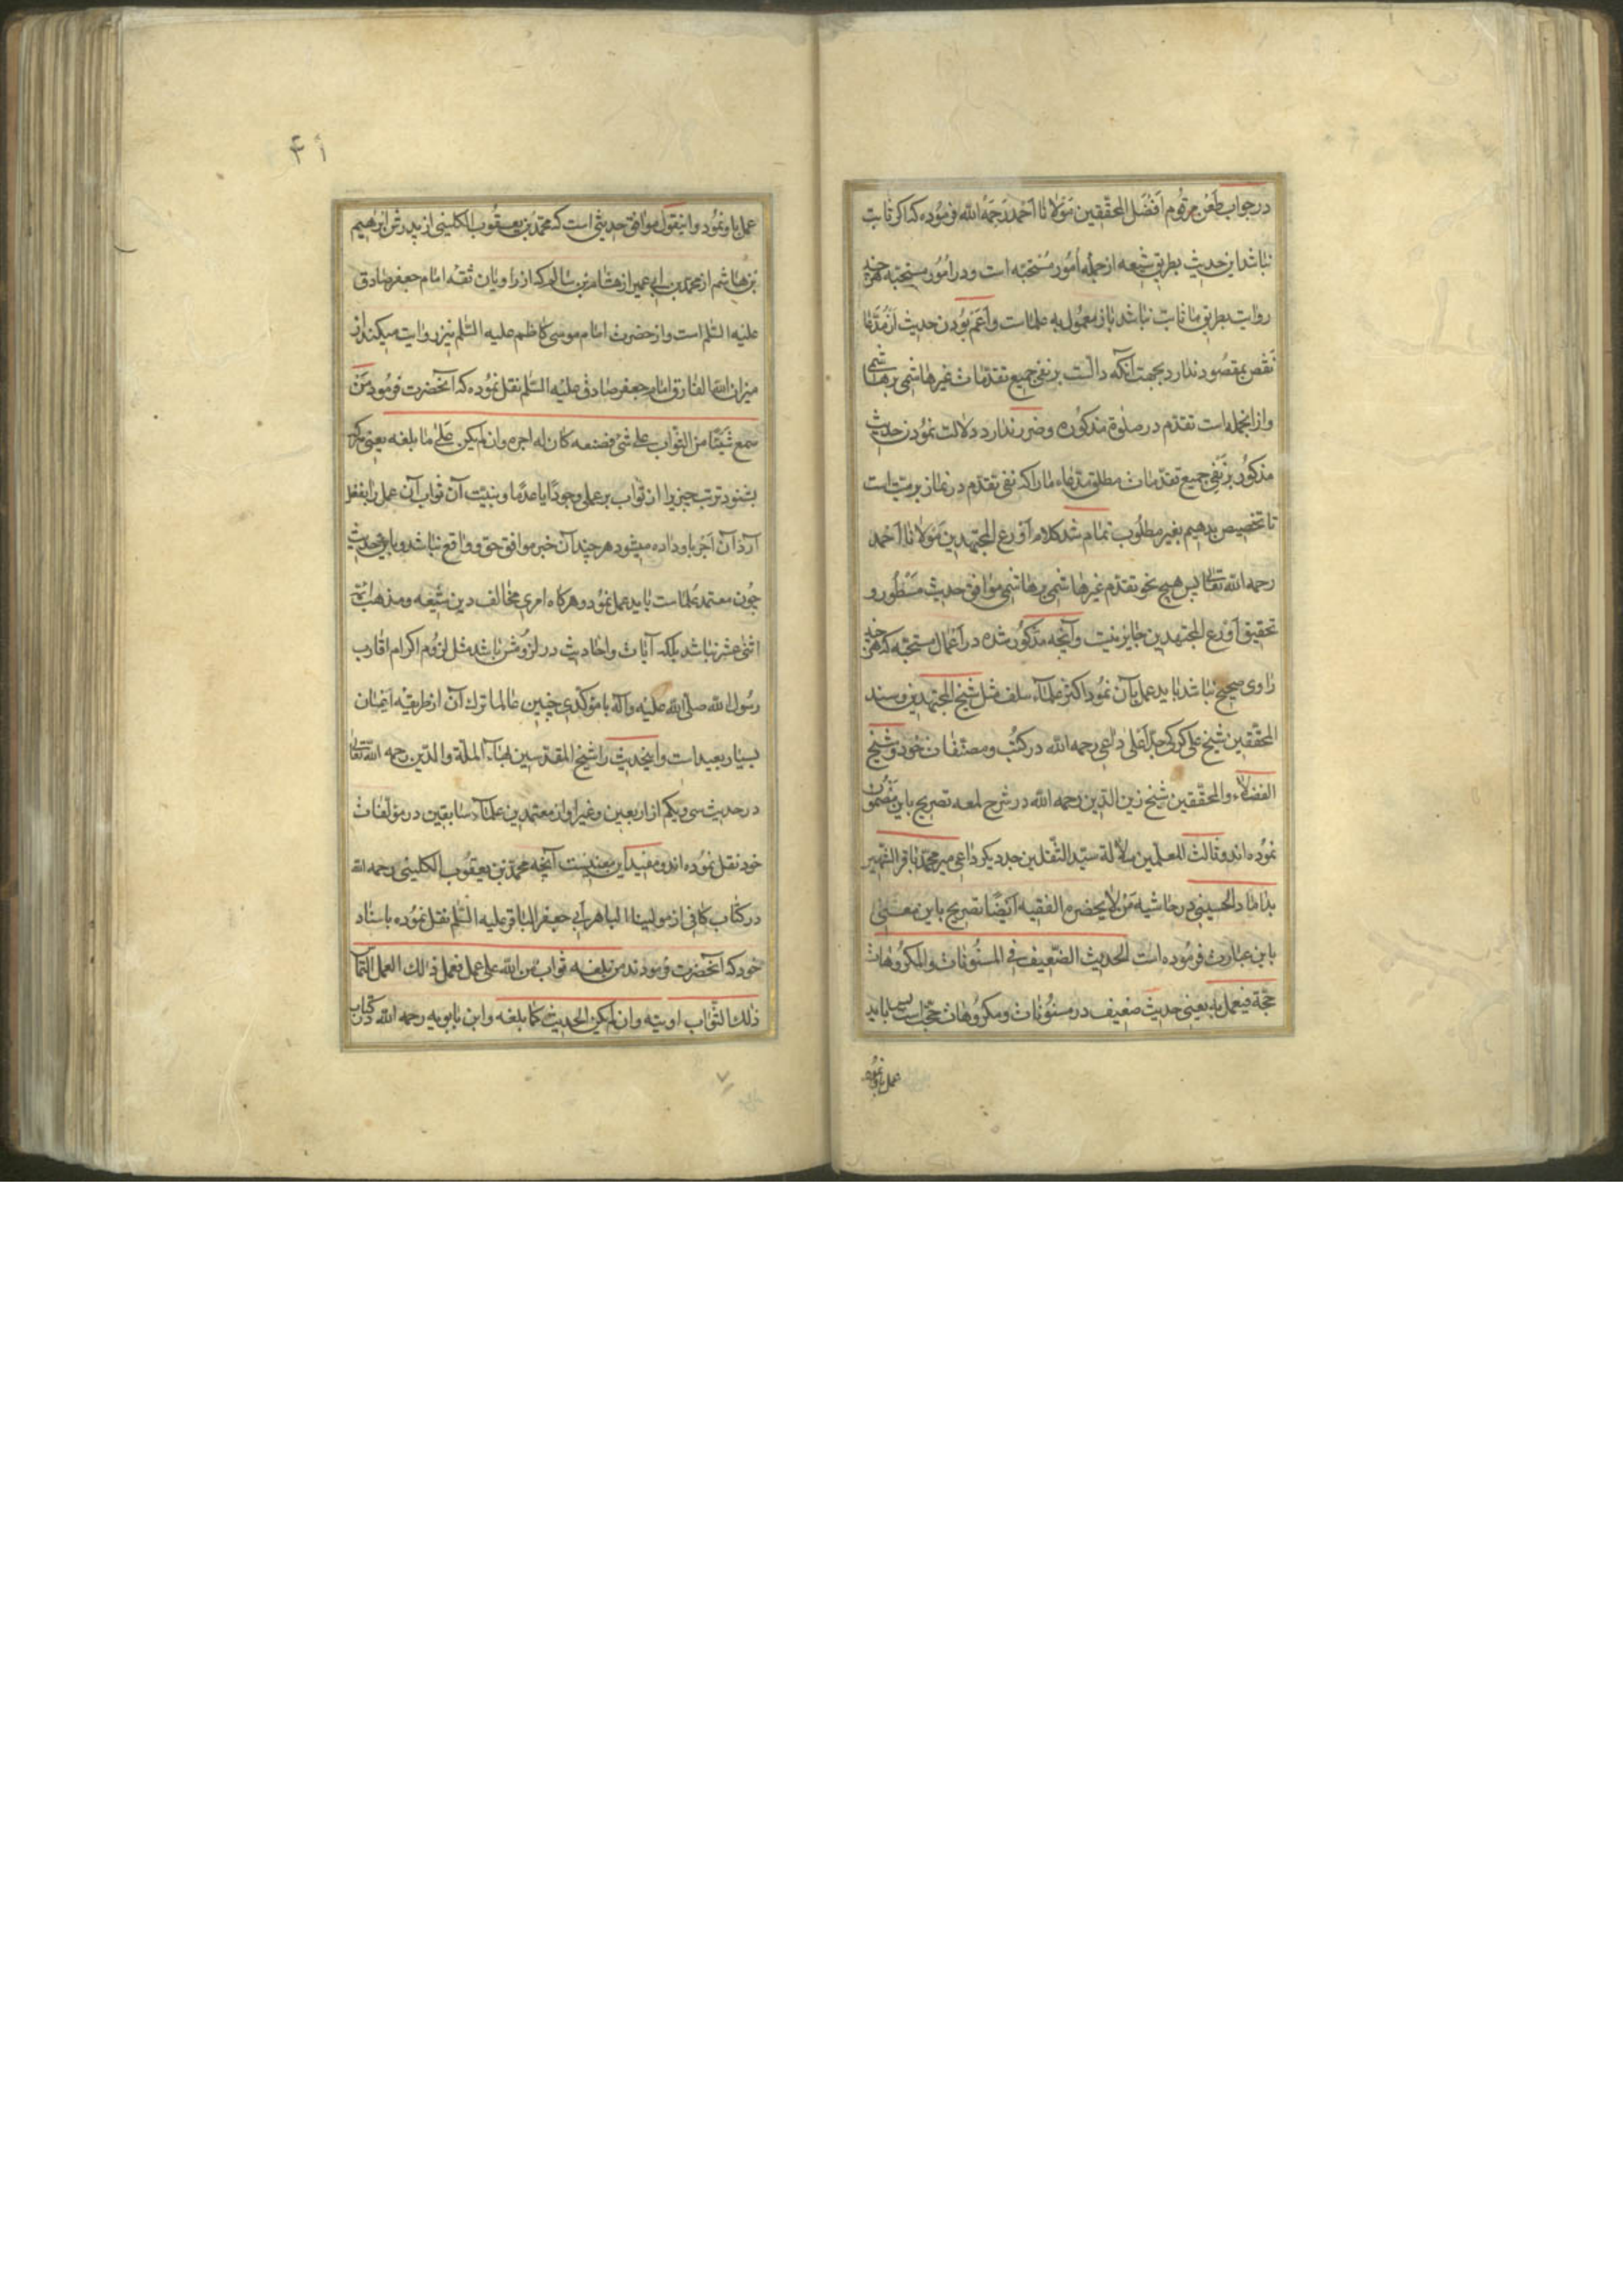 در جواب طعن مرقوم افضل المحققین مولانا احمد رحمه الله فرموده که اگر ثابت
نباشد این حدیث بطریق شیعه از جمله امور مستحبه است و در امور مستحبه هر چند
روایت بطریق ما ثابت نباشد باز معمول به علماست و اعم بودن حدیث از مدعا
نقص بمقصود ندارد بجهت آنکه دالست بر نفی جمیع تقدمات غیر هاشمی بر هاشمی
و از انجمله است تقدم در صلوة مذکوره و ضرر ندارد دلالت نمودن حدیث
مذکور بر نفی جمیع تقدمات مطلق مدعاء ما را که نفی تقدم در نماز بر میت است
تا تخصیص بدهیم بغیر مطلوب تمام شد کلام اورع المجتهدین مولانا احمد
رحمه الله تعالی پس هیچ نحو تقدم غیر هاشمی بر هاشمی موافق حدیث مسطور و
تحقیق اورع المجتهدین جایز نیست و آنچه مذکور شده در اعمال مستحبه که هر چند
راوی صحیح نباشد باید عمل بآن نمود اکثر علماء سلف مثل شیخ المجتهدین و سند
المحققین شیخ علی کرکی جد اعلی داعی رحمه الله در کتب و مصنفات خود و شیخ
الفضلاء والمحققین شیخ زین الدین رحمه الله در شرح لمعه تصریح باین مضمون
نموده اند و ثالث المعلمین سلالة سید الثقلین جد دیگر داعی میر محمد باقر الشهیر
بداماد الحسینی در حاشیه من لایحضره الفقیه ایضا تصریح باین معنی
باین عبارت فرموده است الحدیث الضعیف فی المسنونات والمکروهات
حجة فیعمل به یعنی حدیث ضعیف در مسنونات و مکروهات حجت است پس باید
عمل باو نمود
۴۱
عمل باو نمود و اینقول موافق حدیثی است که محمد بن یعقوب الکلینی از پدرش ابرهیم
بن هاشم از محمد بن ابی عمیر از هشام بن سالم که از راویان ثقه امام جعفر صادق
علیه السلم است و از حضرت امام موسی کاظم علیه السلم نیز روایت میکند از
میزان الله الفارق امام جعفر صادق علیه السلم نقل نموده که آنحضرت فرمود من
سمع شیئا من الثواب علی شئ فصنعه کان له اجره وان لم یکن علی ما بلغه یعنی هر که
بشنود ترتب چیزی را از ثواب بر عملی وجودا یا عدما و بنیت آن ثواب آن عمل را بفعل
آرد آن اجر باو داده میشود هر چند آن خبر موافق حق و واقع نباشد و باین حدیث
چون معتمد علماست باید عمل نمود و هرگاه امری مخالف دین شیعه و مذهب ائمه
اثنی عشر نباشد بلکه آیات و احادیث در لزومش باشد مثل لزوم اکرام اقارب
رسول الله صلی الله علیه وآله با مؤکدی چنین عالما ترک آن از طریقه ایمان
بسیار بعید است و اینحدیث را شیخ المقدسین بهاء الملة والدین رحمه الله تعالی
در حدیث سی و یکم از اربعین و غیر او از معتمدین علماء سابقین در مؤلفات
خود نقل نموده اند و مفید این معنیست آنچه محمد بن یعقوب الکلینی رحمه الله
در کتاب کافی از مولینا الباهر ابی جعفر الباقر علیه السلم نقل نموده باسناد
خود که آنحضرت فرمودند من بلغه ثواب من الله علی عمل فعمل ذلک العمل التماس
ذلک الثواب اوتیه وان لم یکن الحدیث کما بلغه و ابن بابویه رحمه الله در کتاب